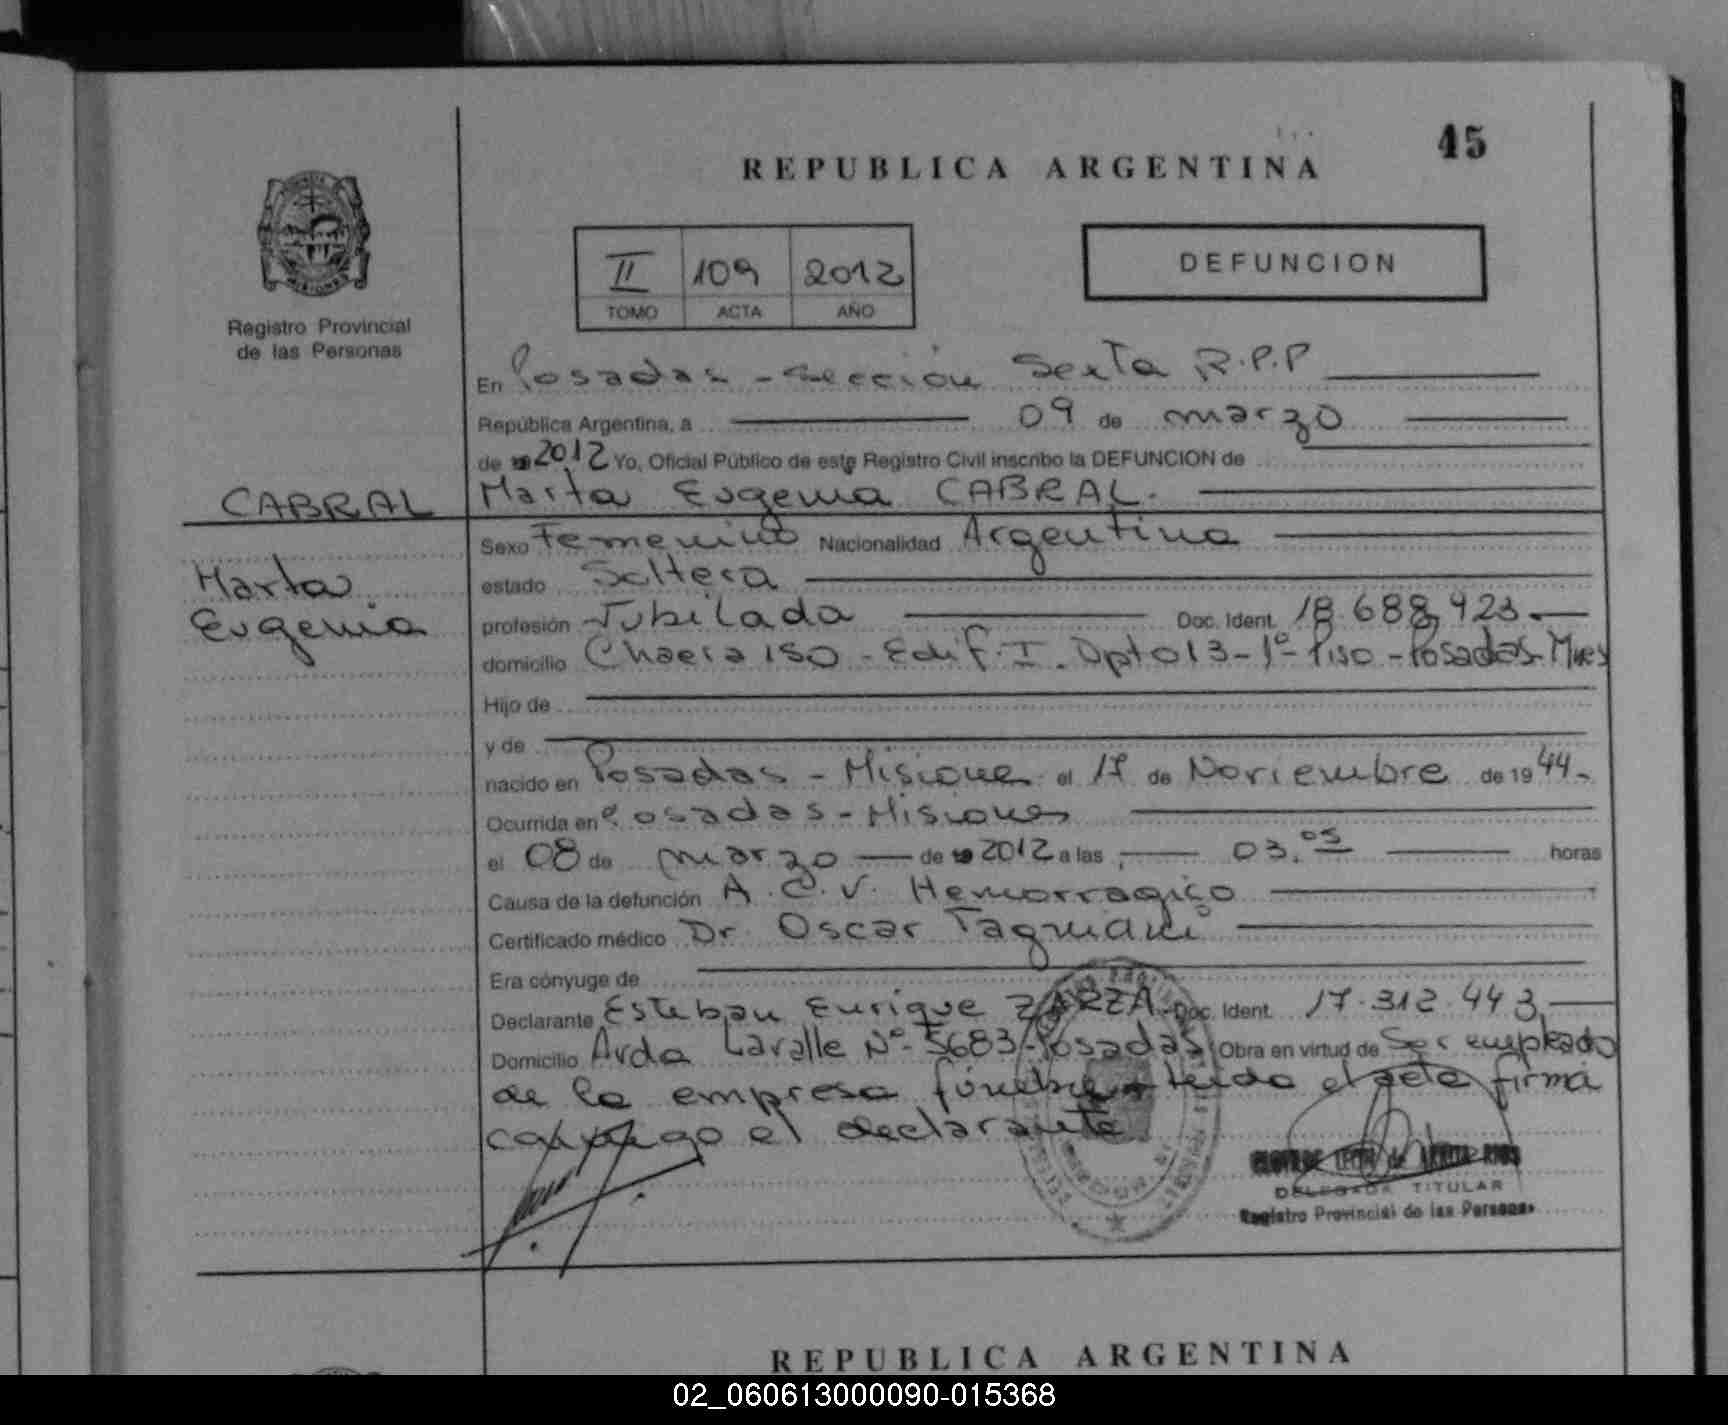 45
REPUBLICA ARGENTINA
II 109 2012
TOMO ACTA AÑO
DEFUNCION
MISIONES
Registro Provincial
de las Personas
En Posadas - Sección Sexta R.P.P
República Argentina, a 09 de marzo
de 2012 Yo, Oficial Público de este Registro Civil inscribo la DEFUNCION de
CABRAL
Marta Eugenia CABRAL.
Marta
Eugenia
Sexo Femenino Nacionalidad Argentina
estado Soltera
profesión Jubilada Doc. Ident. 18.688,923.
domicilio Chacra 150 - Edif. I. Dpto 13 - 1º Piso - Posadas - Mnes
Hijo de
y de
nacido en Posadas - Misiones el 17 de Noviembre de 1944-
Ocurrida en Posadas - Misiones
el 08 de marzo de 2012 a las 03.05 horas
Causa de la defunción A.C.V. Hemorragico
Certificado médico Dr. Oscar
Era cónyuge de
Declarante Esteban Enrique ZARZA Doc. Ident. 17.312.443
Domicilio Avda Lavalle Nº 5683 - Posadas Obra en virtud de Ser empleado
de la empresa fúnebre leida el acta firma
conmigo el declarante
DELEGADA TITULAR
Registro Provincial de las Personas
REPUBLICA ARGENTINA
02_060613000090-015368